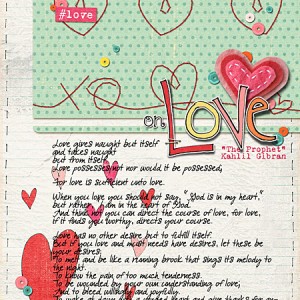 #love
xo
on
Love
"The Prophet"
Kahlil Gibran
Love gives naught but itself
and takes naught
but from itself.
Love possesses not nor would it be possessed;
for love is sufficient unto love.
When you love you should not say, "God is in my heart,"
but rather, I am in the heart of God.
And think not you can direct the course of love, for love,
if it finds you worthy, directs your course.
Love has no other desire but to fulfill itself.
But if you love and must needs have desires, let these be
your desires:
To melt and be like a running brook that sings its melody to
the night.
To know the pain of too much tenderness.
To be wounded by your own understanding of love;
And to bleed willingly and joyfully.
To wake at dawn with a winged heart and give thanks for any